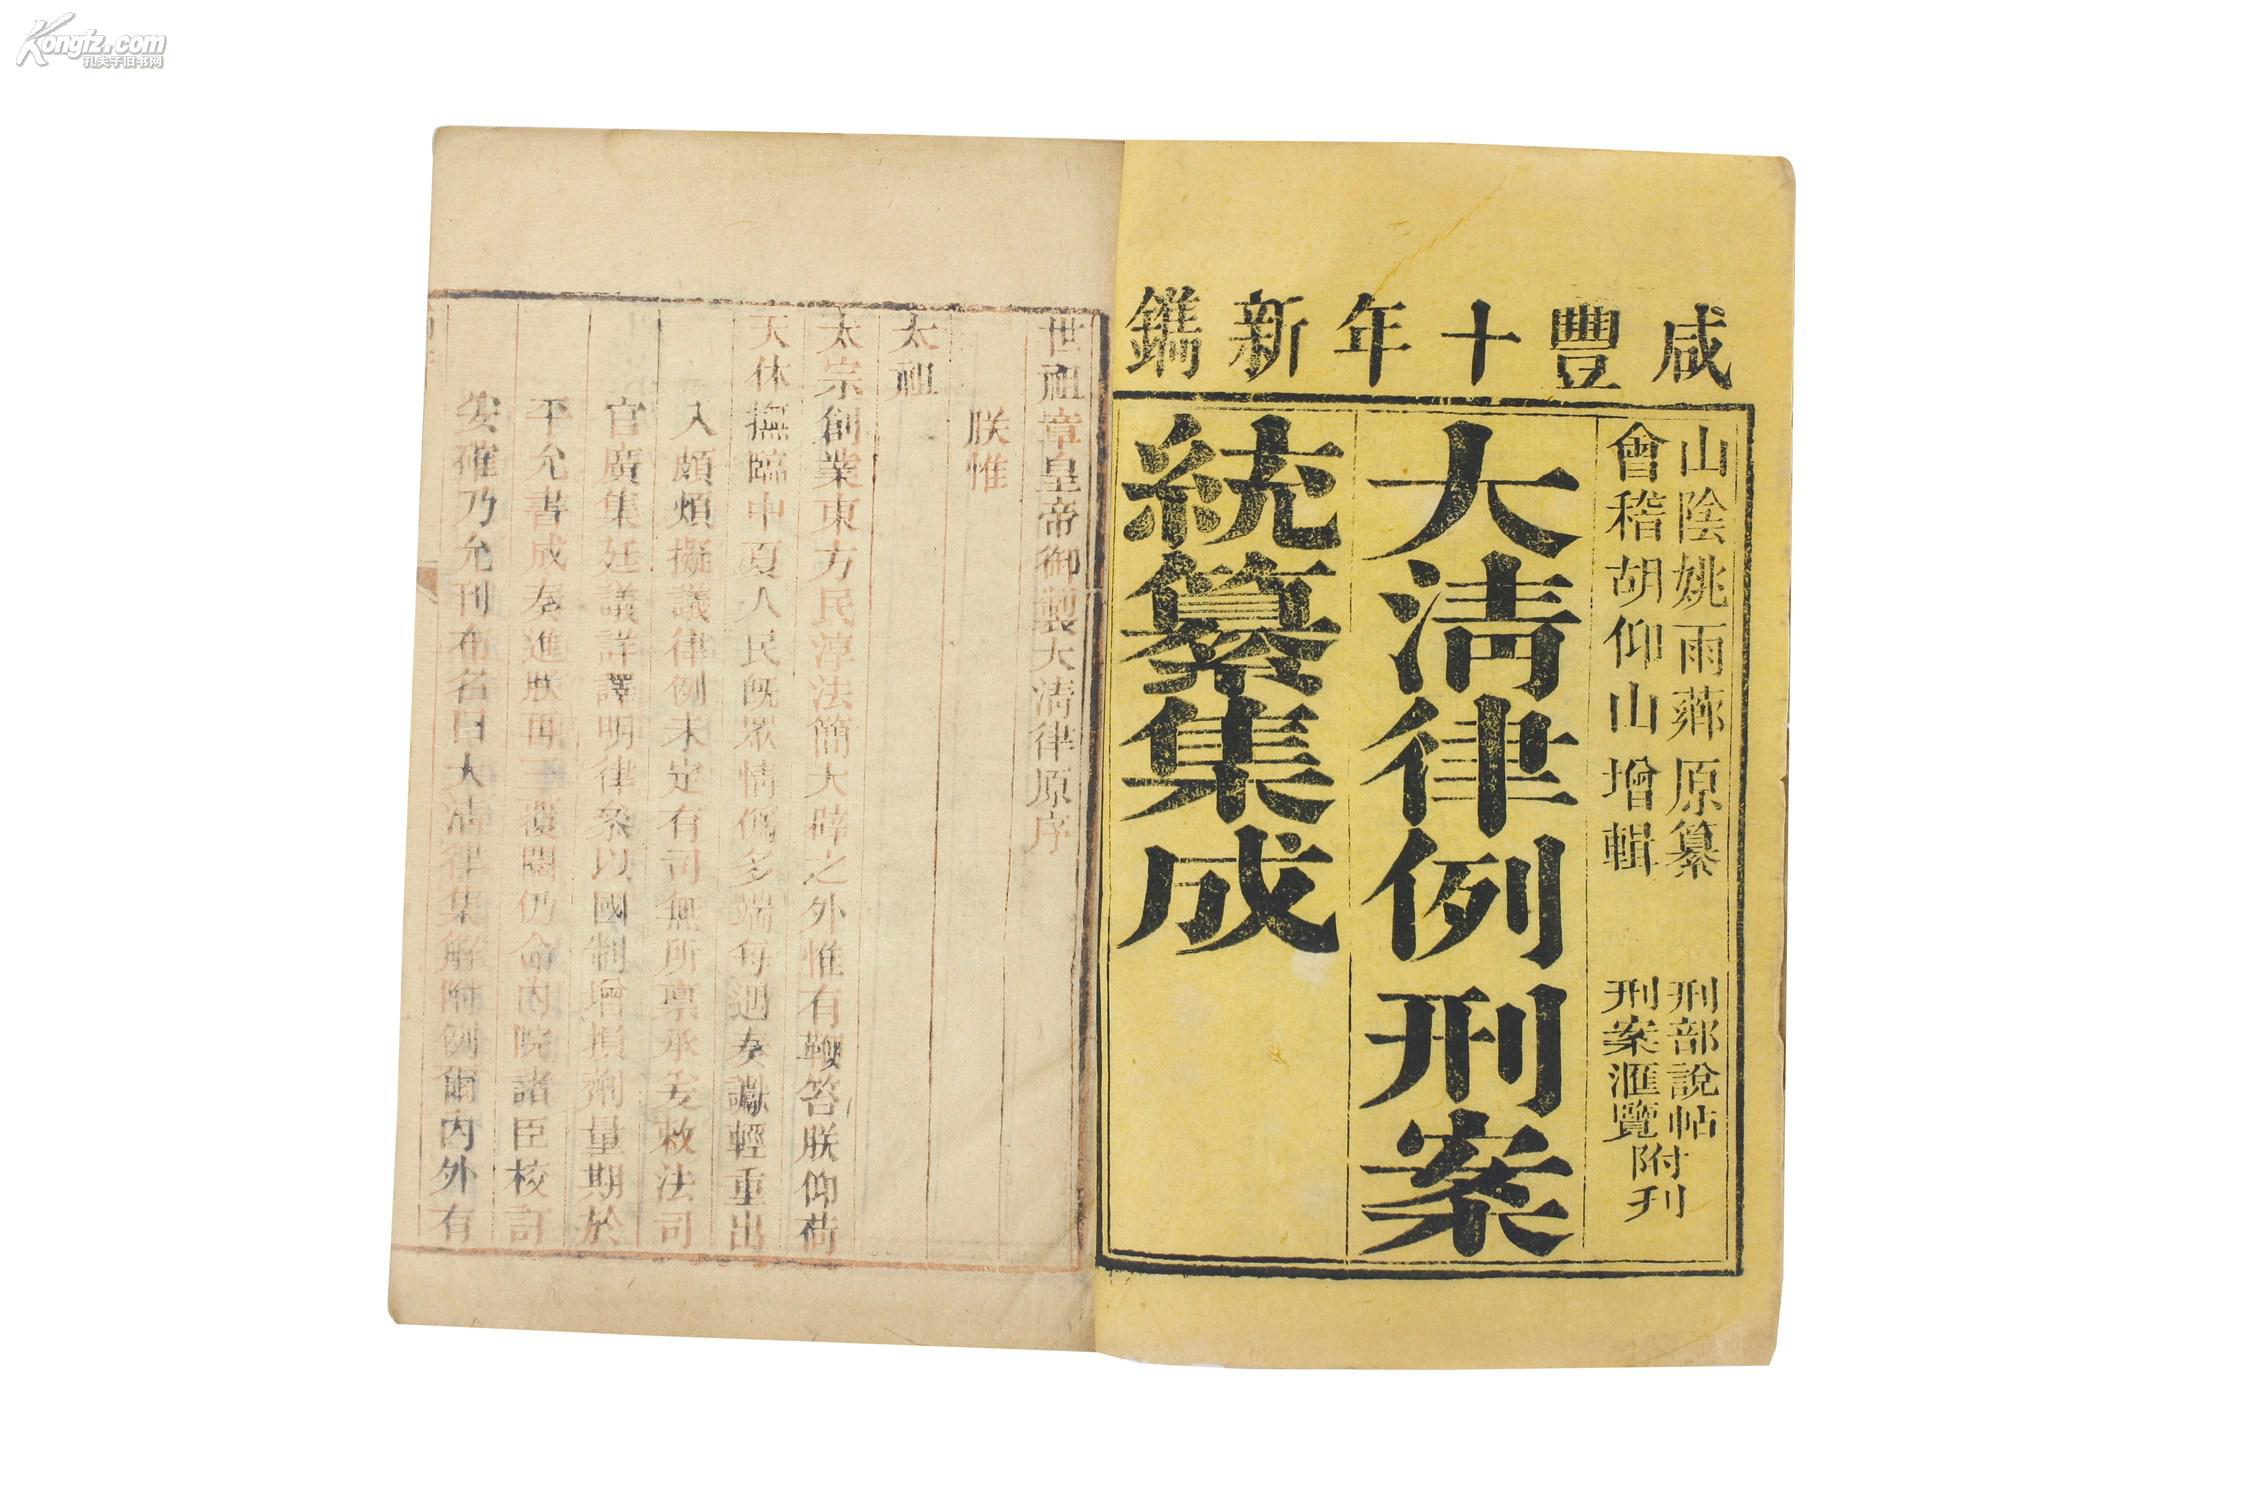 Kongfz.com
孔夫子旧书网
咸豐十年新鐫
山陰姚雨薌原纂
會稽胡仰山增輯
刑部說帖
刑案滙覽附刊
大清律例刑案
統纂集成
世祖章皇帝御製大清律原序
朕惟
太祖
太宗創業東方民淳法簡大辟之外惟有鞭笞朕仰荷
天休撫臨中夏人民旣眾情僞多端每遇奏讞輕重出
入頗煩擬議律例未定有司無所禀承爰敕法司
官廣集廷議詳譯明律叅以國制增損劑量期於
平允書成奏進朕再三覆閱仍命內院諸臣校訂
安確乃允刊布名曰大清律集解附例爾內外有